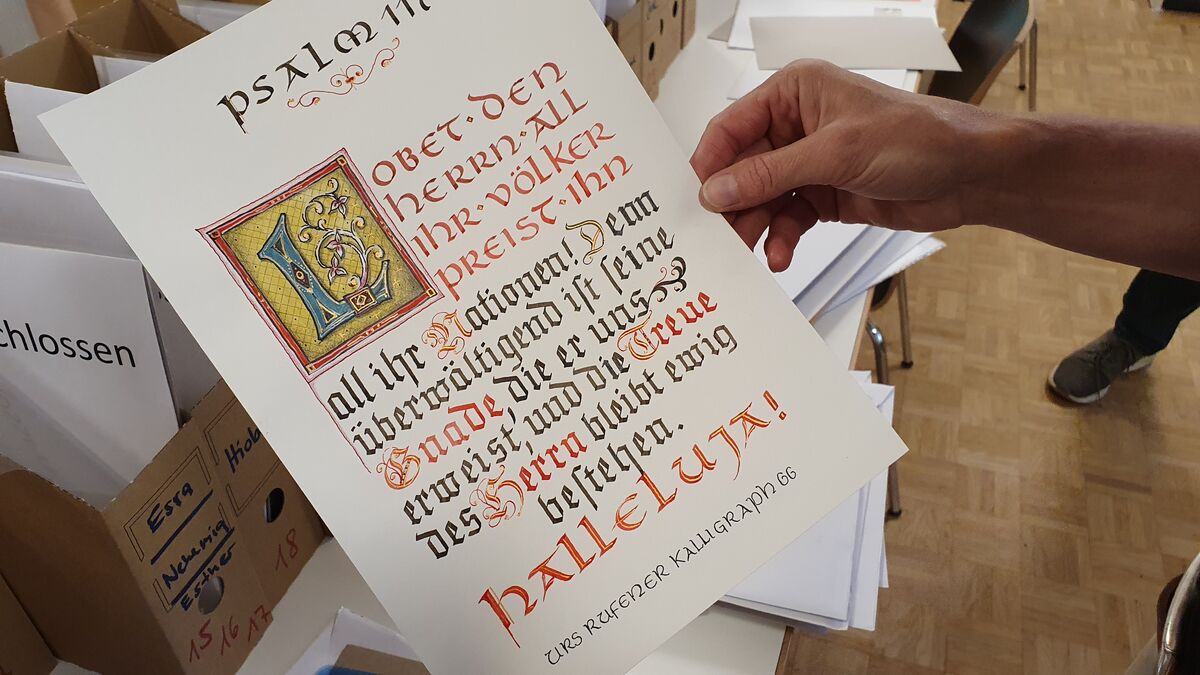 PSALM 117
LOBET·DEN
HERRN·ALL
IHR·VÖLKER
PREIST·IHN
all ihr Nationen! Denn
überwältigend ist seine
Gnade, die er uns
erweist, und die Treue
des Herrn bleibt ewig
bestehen.
HALLELUJA!
URS RUFENER KALLIGRAPH 66
chlossen
Esra
Nehemia
Esther
15 16 17
Hiob
18